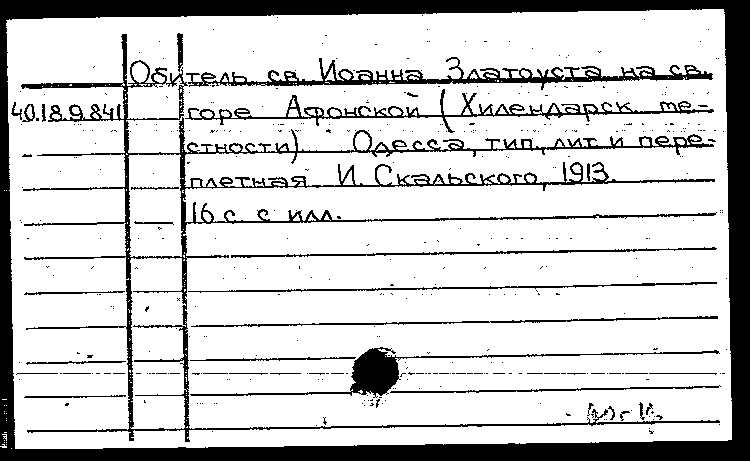 Обитель св. Иоанна Златоуста на св.
40.18.9.841 горе Афонской (Хилендарск. ме-
стности). Одесса, тип., лит. и пере-
плетная И. Скальского, 1913.
16 с. с илл.